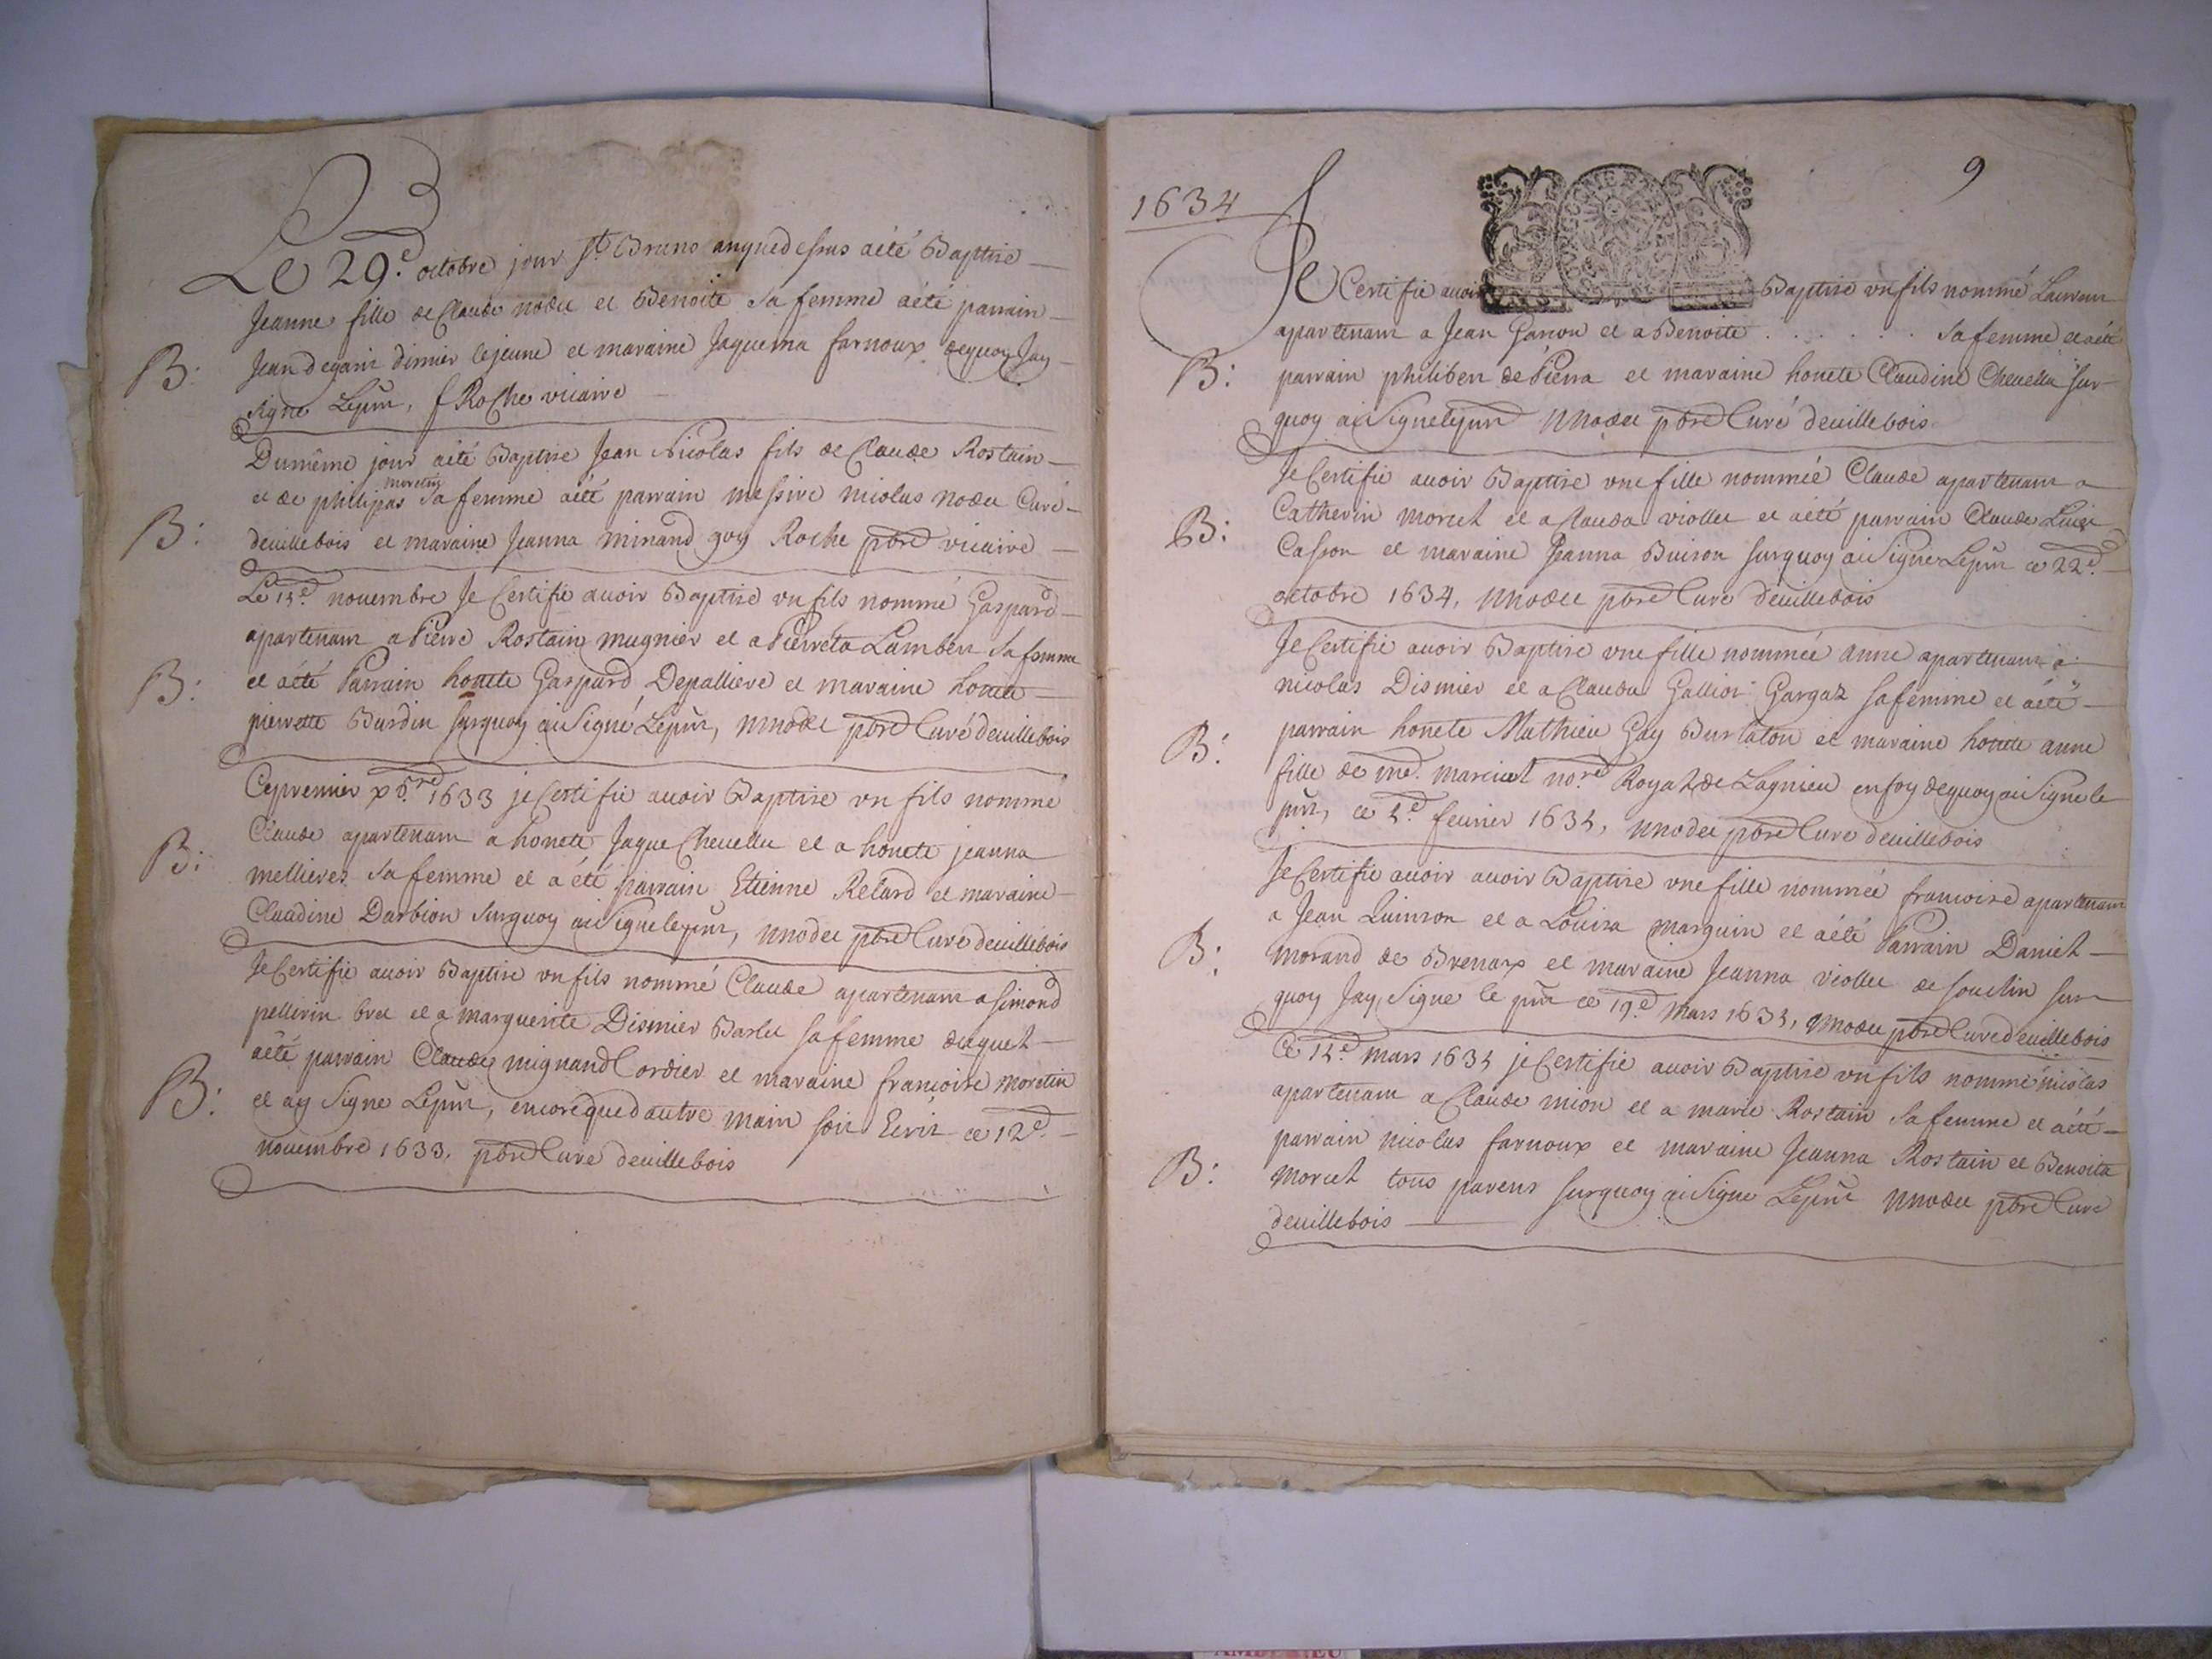 Le 29.e octobre jour St. Bruno anquedessus aété Baptise
Jeanne fille de Claude nodet et Benoite sa femme aété parrain
Jean degani dimier lejeune et maraine Jaquema farnoux dequoy Jay
B:
signe Lepnt, f Roche vicaire
Dumême jour aété Baptise Jean Nicolas fils de Claude Rostain
moretin
et de philipas sa femme aété parrain messire nicolas nodet Curé
B:
deuillebois et maraine Jeanna minand goy Roche pbre vicaire
Le 15.e nouembre Je Certifie auoir Baptise vn fils nommé Gaspard
apartenant a Pierre Rostain mugnier et a Pierreta Lambert sa femme
B:
et aété Parrain honete Gaspard Depalliere et maraine honete
pierrette Burdin surquoy ai Signé Lepnt, nnodet pbre Curé deuillebois
Cepremier xbre 1633 je Certifie auoir Baptise vn fils nommé
Claude apartenant a honete Jaque Cheuellu et a honete jeanna
B:
mellieres sa femme et a été parrain Etienne Relard et maraine
Claudine Darbion surquoy ai Signe lepnt, nnodet pbre Curé deuillebois
Je Certifie auoir Baptise vn fils nommé Claude apartenant a Simond
pellerin bret et a marguerite Dismier Barlet sa femme duquel
aété parrain Claude mignand Cordier et maraine francoise moretin
B:
et ay Signe Lepnt, encoreque dautre main soit Ecrit ce 12.e
nouembre 1633. pbre Cure deuillebois
9
1634
Je Certifie auoir Baptise vn fils nommé Laurent
apartenant a Jean Garron et a Benoite . . . . . . sa femme et aété
B:
parrain philibert de Pierra et maraine honete Claudine Cheuella sur
quoy ai Signe lepnt nnodet pbre Curé deuillebois
Je Certifie auoir Baptise vne fille nommée Claude apartenant a
Catherin morcet et a Clauda viollet et aété parrain Claude Luier
B:
Casson et maraine Jeanna Buison surquoy ai Signe Lepnt ce 22.e
octobre 1634, nnodet pbre Curé deuillebois
Je Certifie auoir Baptise vne fille nommée anne apartenant a
nicolas Dismier et a Clauda Galliot Gargaz sa femme et aété
B:
parrain honete Mathieu Gay Burlaton et maraine honete anne
fille de me. marciet nore. Royal de Lagnieu en foy dequoy ai Signe le
pnt, ce 5.e feurier 1635, nnodet pbre Cure deuillebois
Je Certifie auoir auoir Baptise vne fille nommée francoise apartenant
a Jean Quinson et a Louisa Marguin et aété Parrain Daniel
B:
Morand de Brenax et maraine Jeanna viollet de souclin sur
quoy Jay Signe le pnt ce 19.e Mars 1635, nnodet pbre Cure deuillebois
Ce 15.e mars 1635 je Certifie auoir Baptise vn fils nommé nicolas
apartenant a Claude mion et a marie Rostain sa femme et aété
parrain nicolas farnoux et maraine Jeanna Rostain et Benoita
B:
Morcel tous parens surquoy ai Signe Lepnt nnodet pbre Cure
deuillebois